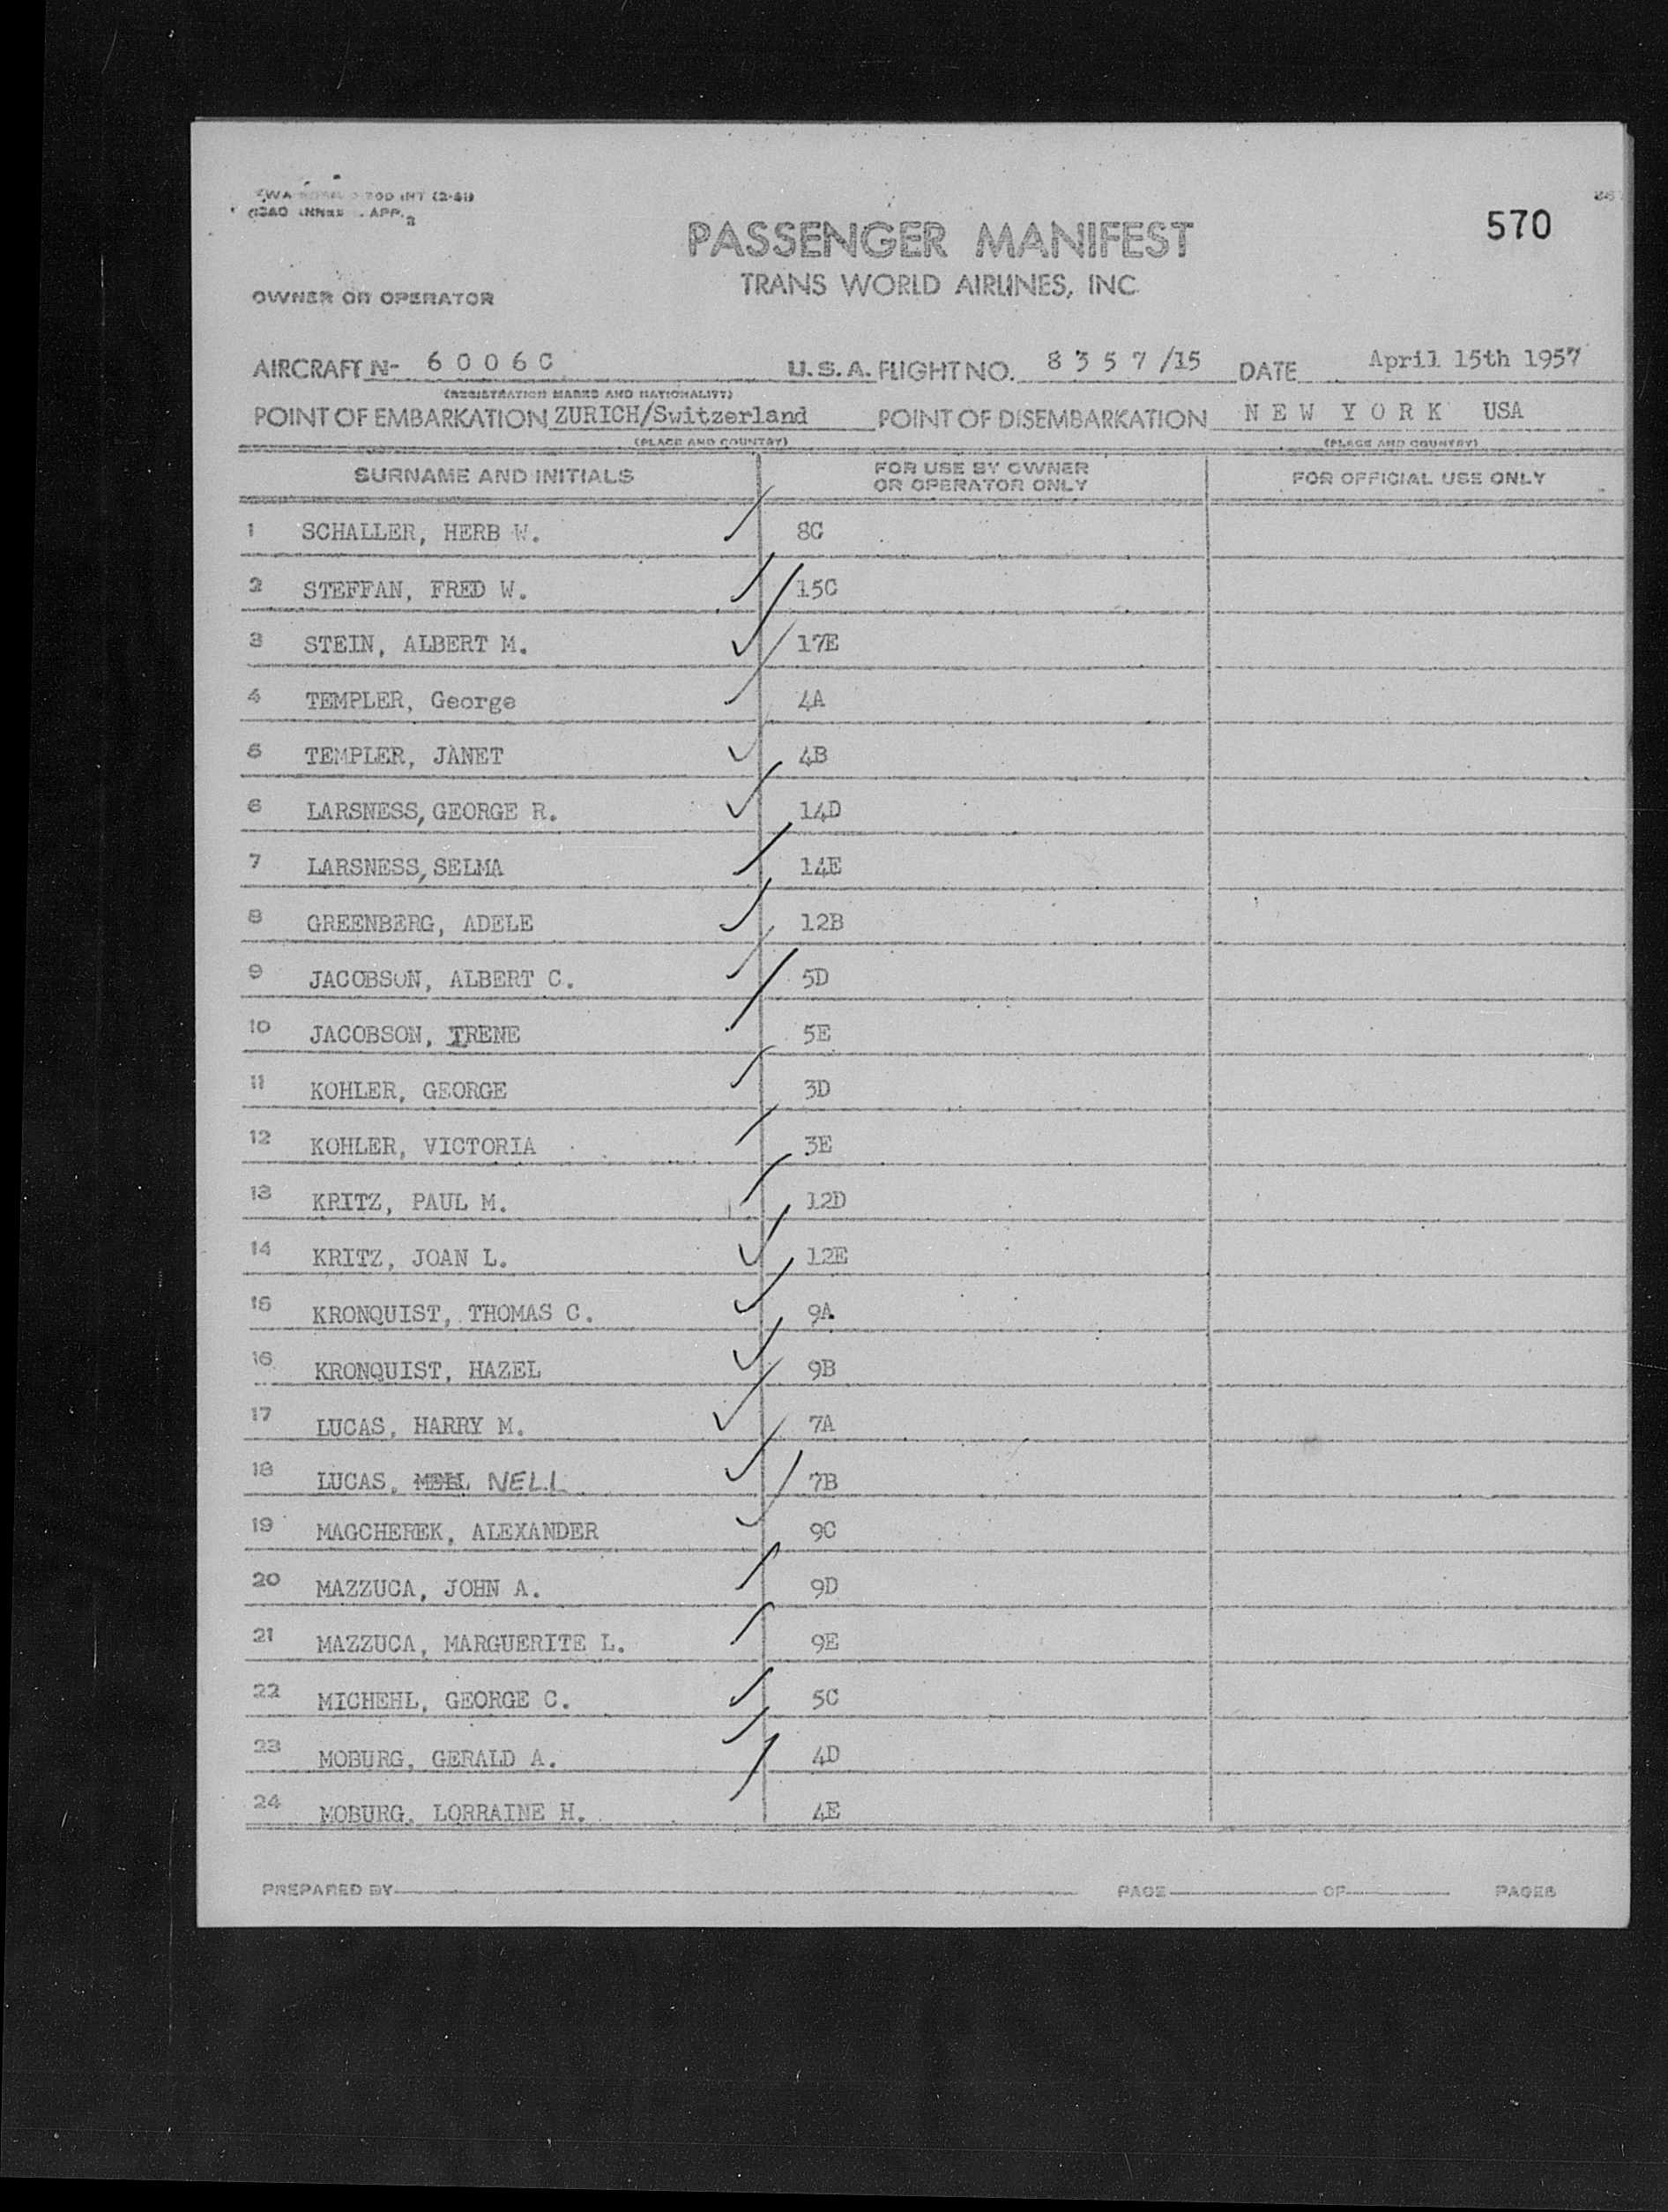 TWA 70D INT (2-51)
ICAO ANNEX APP. 2
570
PASSENGER MANIFEST
TRANS WORLD AIRLINES, INC
OWNER OR OPERATOR
AIRCRAFT N- 6 0 0 6 C U.S.A. FLIGHT NO. 8 3 5 7 /15 DATE April 15th 1957
(REGISTRATION MARKS AND NATIONALITY)
POINT OF EMBARKATION ZURICH/Switzerland POINT OF DISEMBARKATION N E W Y O R K USA
(PLACE AND COUNTRY) (PLACE AND COUNTRY)
SURNAME AND INITIALS FOR USE BY OWNER OR OPERATOR ONLY FOR OFFICIAL USE ONLY
1 SCHALLER, HERB W. 8C
2 STEFFAN, FRED W. 15C
3 STEIN, ALBERT M. 17E
4 TEMPLER, George 4A
5 TEMPLER, JANET 4B
6 LARSNESS, GEORGE R. 14D
7 LARSNESS, SELMA 14E
8 GREENBERG, ADELE 12B
9 JACOBSON, ALBERT C. 5D
10 JACOBSON, IRENE 5E
11 KOHLER, GEORGE 3D
12 KOHLER, VICTORIA 3E
13 KRITZ, PAUL M. 12D
14 KRITZ, JOAN L. 12E
15 KRONQUIST, THOMAS C. 9A
16 KRONQUIST, HAZEL 9B
17 LUCAS, HARRY M. 7A
18 LUCAS, NELL 7B
19 MAGCHEREK, ALEXANDER 9C
20 MAZZUCA, JOHN A. 9D
21 MAZZUCA, MARGUERITE L. 9E
22 MICHEHL, GEORGE C. 5C
23 MOBURG, GERALD A. 4D
24 MOBURG, LORRAINE H. 4E
PREPARED BY PAGE OF PAGES